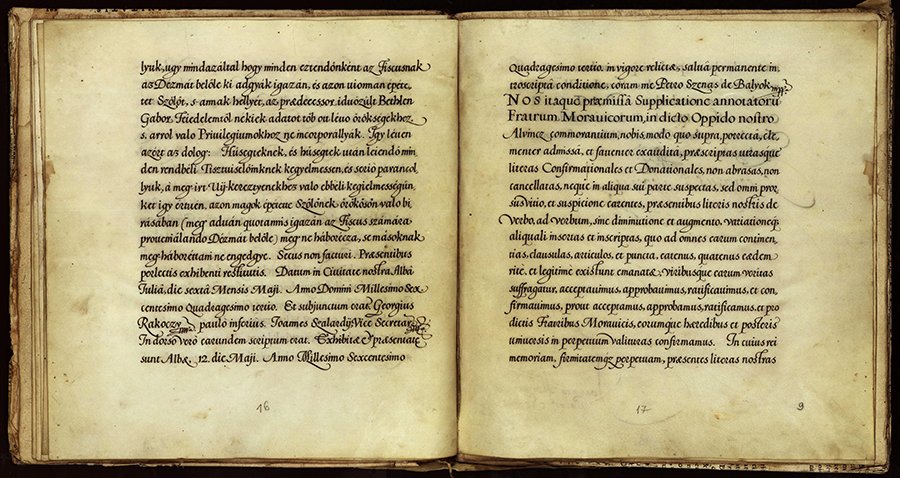 lyuk, ugy mindazáltal hogy minden eztendönként az Fiscusnak
az Dézmát belőle ki adgyák igazán, és azon uionnan épéte,
tet Szőlőt, s-annak hellyét, az prædecessor, iduözült Bethlen
Gabor Feiedelemtől nékiek adatot töb ott léuo örökségekhez,
s. arrol valo Privilegiumokhoz ne incorporallyák. Igy léuen
azért az dolog: Hűségteknek, és hűségtek után leiendő min
den rendbéli Tisztuiselőinknek kegyelmessen, és serio parancol
lyuk, á meg irt Uy-kereztyenekhez valo ebbéli kegielmességün,
ket igy értuén, azon magok épétette Szőlőnek örökösön valo bi
rásában (meg aduán quotannis igazán az Fiscus számára
proueniálando Dézmát belőle) meg ne háborícza, se másoknak
meg-háboréttani ne engedgye. Secus non facturi. Præsentibus
perlectis exhibenti restitutis. Datum in Civitate nostra Alba
Iulia, die sexta Mensis Maji. Anno Domini Millesimo Sex
centesimo Quadragesimo tertio. Et subjunctum erat Georgius
Rakoczy mp. paulo inferius. Joannes Szalardij Vice Secretar
In dorso verò earundem scriptum erat. Exhibitæ et præsentatæ
sunt Albæ, 12. die Maji. Anno Millesimo Sexcentesimo
16
Quadragesimo tertio, in vigore relictæ, salua permanente in,
troscripta conditione, coram me Petro Szenas de Balyok mpp.
NOS itaquè præmissa Supplicatione annotatorū
Fratrum Morauicorum, in dicto Oppido nostro
Alvincz commorantium, nobis, modo quo supra, porrecta, cle,
menter admissa, et fauenter exaudita, præscriptas utrasque
literas Confirmationales et Donationales, non abrasas, non
cancellatas, neque in aliqua sui parte suspectas, sed omni pror,
sus vitio, et suspicione carentes, præsentibus literis nostris de
Verbo, ad verbum, sine diminutione et augmento, variationeq
aliquali insertas et inscriptas, quo ad omnes earum continen,
tias, clausulas, articulos, et puncta, eatenus, quatenus eædem
ritè, et legitimè existunt emanatæ, viribusque earum veritas
suffragatur, acceptauimus, approbauimus, ratificauimus, et con,
firmauimus, prout acceptamus, approbamus, ratificamus, et præ
dictis Fratribus Morauicis, eorumque hæredibus et posteris
uniuersis in perpetuum valituras confirmamus. In cuius rei
memoriam, firmitatemque perpetuam, præsentes literas nostras
17
9